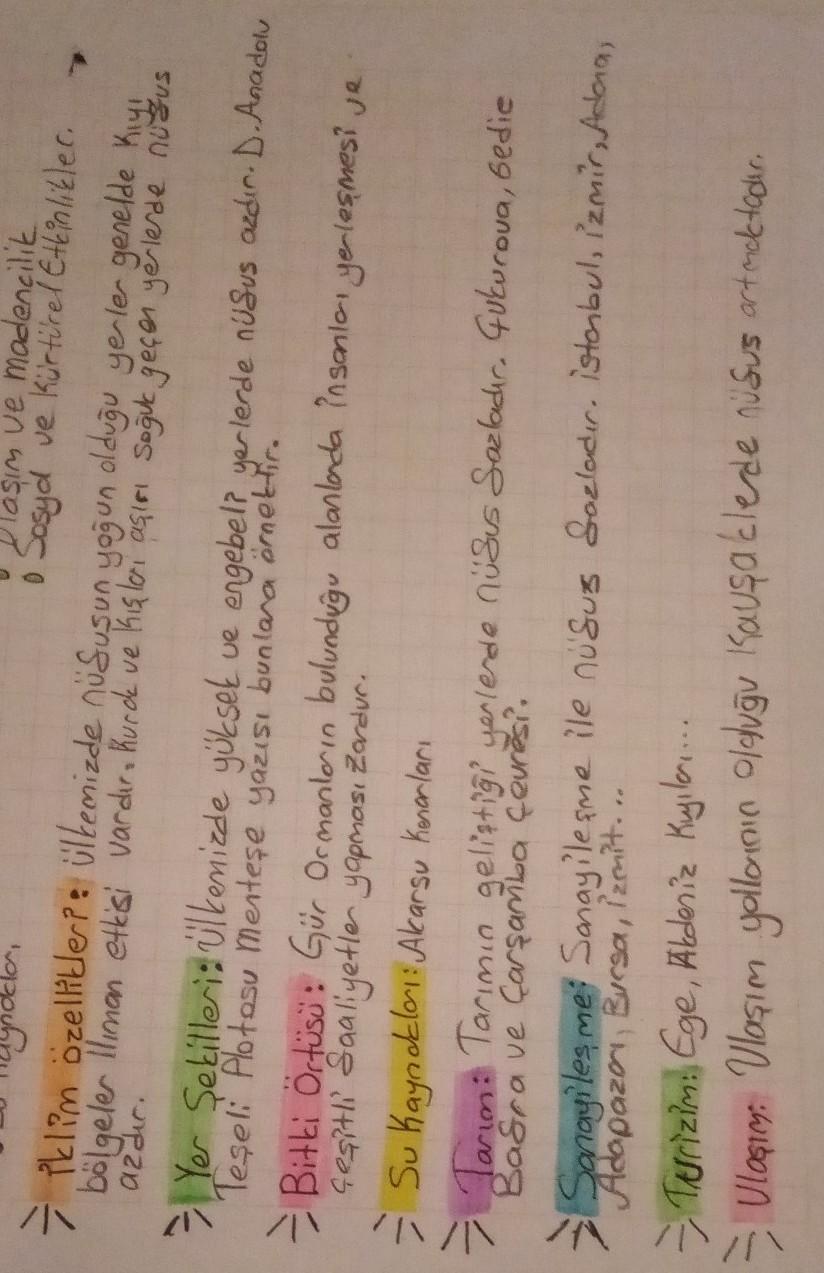 kaynakları
• Ulaşım ve madencilik
• Sosyal ve Kürtürel Etkinlikler.
İklim özellikleri: Ülkemizde nüfusun yoğun olduğu yerler genelde Kıyı
bölgeler Ilıman etkisi vardır. Kurak ve kışları aşırı soğuk geçen yerlerde nüfus
azdır.
Yer Şekilleri: Ülkemizde yüksek ve engebeli yerlerde nüfus azdır. D. Anadolu
Teşeli Platosu Menteşe yazısı bunlara örnektir.
Bitki Örtüsü: Gür Ormanların bulunduğu alanlarda İnsanları yerleşmesi ve
çeşitli faaliyetler yapması zordur.
Su Kaynakları: Akarsu Kenarları
Tarım: Tarımın geliştiği yerlerde nüfus fazladır. Çukurova, Gedie
Bafra ve Çarşamba çevresi.
Sanayileşme: Sanayileşme ile nüfus fazladır. istanbul, izmir, Adana,
Adapazarı, Bursa, izmit...
Turizim: Ege, Akdeniz Kıyıları...
Ulaşım: Ulaşım yollarının olduğu Kavşaklarde nüfus artmaktadır.